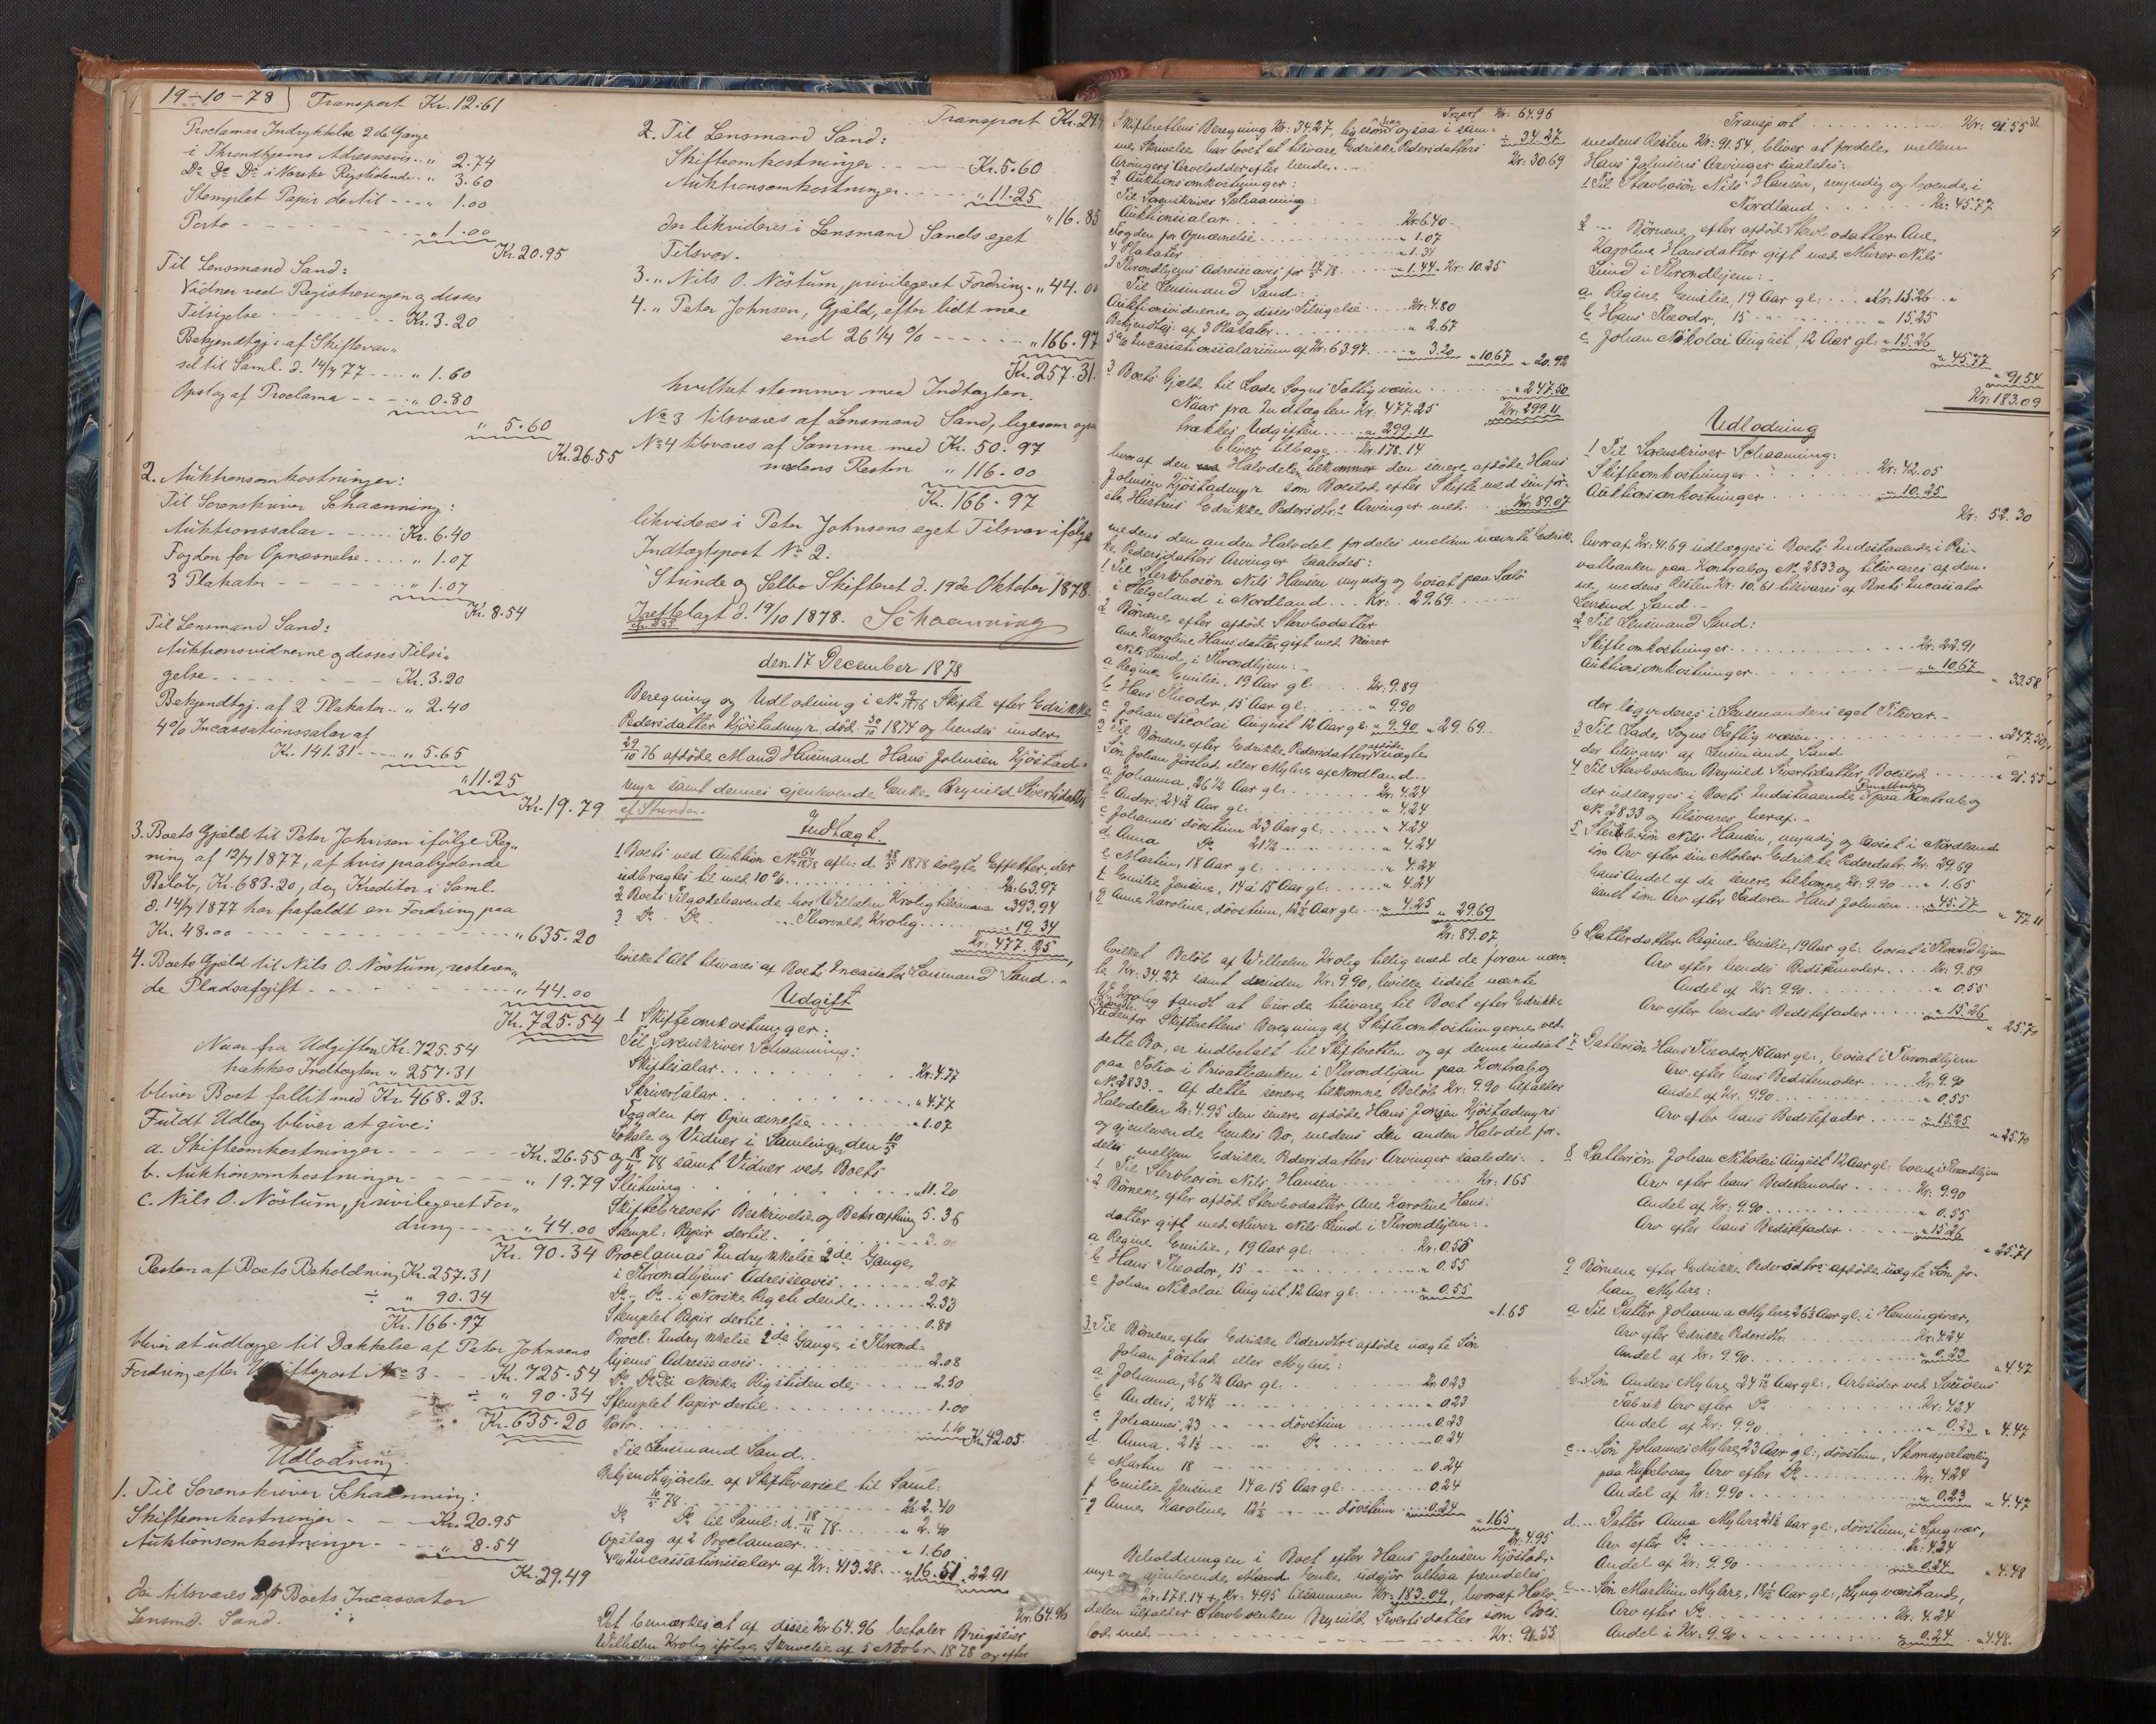 19-10-78 Transport Kr. 12.61
Proclamas Indrykkelse 2de Gange
i Throndhjems Adresseavis .. " 2.74
Do Do Do i Norske Rigstidende .. " 3.60
Stemplet Papir dertil - - - " 1.00
Porto - - - - " 1.00
Kr. 20.95
Til Lensmand Sand:
Vidner ved Registreringen og disses
Tilsigelse - - - - Kr. 3.20
Bekjendtgj: af Skiftevar„
sel til Saml. d. 14/7 77 - - - " 1.60
Opslag af Proclama - - - " 0.80
" 5.60
Kr. 26.55
2. Auktionsomkostninger:
Til Sorenskriver Schaanning:
Auktionssalar - - - - Kr. 6.40
Fogden for Opnævnelse - - - " 1.07
3 Plakater - - - - " 1.07
Kr. 8.54
Til Lensmand Sand:
Auktionsvidnerne og disses Tilsi„
gelse - - - - Kr. 3.20
Bekjendtgj. af 2 Plakater .. " 2.40
4% Incassationssalar af
Kr. 141.31 - - - " 5.65
" 11.25
Kr. 19.79
3. Boets Gjæld til Peter Johnsen ifölge Reg„
ning af 12/7 1877, af hvis paalydende
Belöb, Kr. 683.20, dog Kreditor i Saml.
d. 14/7 1877 har frafaldt en Fordring paa
Kr. 48.00 - - - - " 635.20
4. Boets Gjæld til Nils O. Nöstum, resteren„
de Pladsafgift - - - - " 44.00
Kr. 725.54
Naar fra Udgiften Kr. 725.54
trækkes Indtægten " 257.31
bliver Boet fallit med Kr. 468.23.
Fuldt Udlæg bliver at give:
a. Skifteomkostninger - - - - Kr. 26.55
b. Auktionsomkostninger - - - " 19.79
c. Nils O. Nöstum, privilegeret For„
dring - - - " 44.00
Kr. 90.34
Resten af Boets Beholdning Kr. 257.31
÷ " 90.34
Kr. 166.97
bliver at udlægge til Dækkelse af Peter Johnsens
Fordring efter Udgiftspost No 3 - - Kr. 725.54
÷ " 90.34
Kr. 635.20
Udlodning.
1. Til Sorenskriver Schaanning:
Skifteomkostninger - - - Kr. 20.95
Auktionsomkostninger - - - " 8.54
Kr. 29.49
der tilsvares af Boets Incassator
Lensmd. Sand.
Transport Kr. 29.4
2. Til Lensmand Sand:
Skifteomkostninger - - - Kr. 5.60
Auktionsomkostninger - - - " 11.25
" 16.85
der likvideres i Lensmand Sands eget
Tilsvar.
3. " Nils O. Nöstum, privilegeret Fordring - " 44.00
4. " Peter Johnsen, Gjæld, efter lidt mere
end 26 1/4 % - - - - " 166.97
Kr. 257.31.
hvilket stemmer med Indtægten.
No 3 tilsvares af Lensmand Sand, ligesom ogsaa
No 4 tilsvares af Samme med Kr. 50.97
medens Resten " 116.00
Kr. 166.97
likvideres i Peter Johnsens eget Tilsvar ifölge
Indtægtspost No 2.
Strinde og Selbo Skifteret d. 19de Oktober 1878.
Ireftelagt d. 19/10 1878. Schaanning
den 17 December 1878
Beregning og Udlodning i No 9/1876 Skifte efter Edrikke
Pedersdatter Kjöstadmyr, död 30/10 1874 og hendes under
29/10 76 afdöde Mand Husmand Hans Johnsen Kjöstad=
myr samt dennes gjenlevende Enke Brynild Sivertsdatter
af Strinden.
Indtægt.
1 Boets ved Auktion No 64/1878 afh: d. 28/5 1878 solgte Effekter, der
udbragtes til med 10 % . . . . Kr: 63.97
2 Boets Tilgodehavende hos Wilhelm Krolig tilsammen " 393.94
3 Do - Do - .. Thorvald Krolig . . . . " 19.34
Kr: 477.25,
hvilket Alt tilsvares af Boets Incassator Lensmand Sand. -
Udgift
1 Skifteomkostninger:
Til Sorenskriver Schaanning:
Skiftesalar . . . . Kr: 4.77
Skriversalar . . . . " 4.77
Fogden for Opnævnelse . . . . " 1.07
Lokale og Vidner i Samlinger den 10/5
og 18/11 78 samt Vidner ved Boets
Slutning . . . . " 11.20
Skiftebrevets Beskrivelse og Bekræftning 5.36
Stempl: Papir dertil . . . . 3.00
Proclamas Indrykkelse 2de Gange
i Throndhjems Adresseavis . . . . 2.07
Do - Do - i Norske Rigstidende . . . . 2.33
Stemplet Papir dertil . . . . 0.80
Procl: Indrykkelse 2de Gange i Thrond=
hjems Adresseavis . . . . 2.08
Do Do Do Norske Rigstidende . . . . 2.50
Stemplet Papir dertil . . . . 1.00
Porto . . . . 1.10 Kr. 42.05.
Til Lensmand Sand.
Bekjendtgjörelse af Skiftevarsel til Saml:
10/5 78 . . . . Kr: 2.40
Do Do til Saml: d. 18/11 78 . . . . " 2.40
Opslag af 2 Proclamaer . . . . " 1.60
4% Incassationssalar af Kr: 413.28 . . . " 16.51 " 22.91
Kr. 64.96
Det bemærkes, at af disse Kr 64.96 betaler Brugseier
Wilhelm Krolig ifölge Skrivelse af 5 Novbr 1878 og efter
Trsport Kr. 64.96
Skifterettens Beregning Kr: 34.27, ligesom han ogsaa i sam= ÷ 34.27
me Skrivelse har Boet at tilsvare Edrikke Pedersdatters Kr: 30.69
Arvingers Arvelodder efter hende. . . .
2 Auktionsomkostninger:
Til Sorenskriver Schaaning:
Auktionssalar . . . . Kr: 6.40
Fogden for Opnævnelse . . . . " 1.07
4 Plakater . . . . " 1.34
I Throndhjems Adresseavis for 14/5 78 . . . . " 1.44 - Kr: 10.25
Til Lensmand Sand:
Auktionsvidnerne og disses Tilsigelse . . . . Kr: 4.80
Bekjendtgj: af 3 Plakater . . . . " 2.67
5 % Incassationssalarium af Kr: 63.97 . . . . " 3.20 " 10.67 " 20.92
3 Boets Gjæld til Lade Sogns Fattigvæsen . . . . " 247.50
Kr: 299.11
Naar fra Indtægten Kr: 477.25
trækkes Udgiften . . . . " 299.11
bliver tilbage Kr: 178.14
hvoraf den Halvdel tilkommer den senere afdöde Hans
Johnsen Kjöstadmyr som Boeslod efter Skifte med sin för=
ste Hustrus Edrikke Pedersdtr:s Arvinger med . . Kr: 89.07
medens den anden Halvdel fordeles mellem nævnte Edrik=
ke Pedersdatters Arvinger saaledes:
1 Til Stervbosön Nils Hansen myndig og bosat paa
i Helgeland i Nordland . . . Kr: 29.69
2 Börnene efter afdöd Stervbodatter
Ane Karoline Hansdatter gift med Murer
Nils Lund i Throndhjem: -
a Regine Emilie, 19 Aar gl: . . . . Kr: 9.89
b Hans Theodor, 15 Aar gl: . . . . " 9.90
c Johan Nicolai August 12 Aar gl: " 9.90 " 29.69
3 Til Börnene efter Edrikke Pedersdatters afdöde uægte
Sön Johan Jörstad eller Myhre af Nordland. -
a Johanna, 26 1/2 Aar gl: . . . . Kr: 4.24
b Anders, 24 1/2 Aar gl: . . . . " 4.24
c Johannes dövstum 23 Aar gl: . . . . " 4.24
d. Anna Do 21 1/2 . . . . " 4.24
e Martin, 18 Aar gl: . . . . " 4.24
f Emilie Jensine, 14 á 15 Aar gl: . . . . " 4.24
g Anne Karoline, dövstum, 12 1/2 Aar gl: . . " 4.25 " 29.69
Kr: 89.07,
hvilket Belöb af Wilhelm Krolig tillig med de foran nævn=
te Kr: 34.27 samt desuden Kr: 9.90, hvilke sidste nævnte
W Krolig fandt at burde tilsvare til Boet efter Edrikke
udenfor Skifterettens Beregning af Skifteomkostningerne ved
dette Bo, er indbetalt til Skifteretten og af denne indsat
paa Folio i Privatbanken i Throndhjem paa Kontrabog
No 2833. - Af dette senere tilkomne Belöb Kr: 9.90 tilfalder
Halvdelen Kr: 4.95 den senere afdöde Hans Jonsen Kjöstadmyrs
og gjenlevende Enkes Bo, medens den anden Halvdel for=
deles mellem Edrikke Pedersdatters Arvinger saaledes: -
1 Til Stervbosön Nils Hansen . . . . Kr: 1.65
2 Börnene efter afdöd Stervbodatter Ane Karoline Hans=
datter gift med Murer Nils Lund i Throndhjem: -
a Regine Emilie, 19 Aar gl: . . . . Kr: 0.55
b Hans Theodor, 15 - " - . . . . " 0.55
c Johan Nikolai August, 12 Aar gl: . . . . " 0.55
" 1.65
3 Til Börnene efter Edrikke Pedersdtr:s afdöde uægte Sön
Johan Jörstad eller Myhre:
a Johanna, 26 1/2 Aar gl: . . . . Kr: 0.23
b Anders, 24 1/2 . . . . " 0.23
c Johannes, 23 - " - dövstum . . . . " 0.23
d Anna, 21 1/2 - " - Do . . . . " 0.24
e Martin 18 - " - . . . . " 0.24
f Emilie Jensine 14 a 15 Aar gl: . . . . " 0.24
g Anne Karoline, 12 1/2 - " - dövstum . . . . " 0.24
" 1.65
Kr: 4.95
Beholdningen i Boet efter Hans Johnsen Kjöstad=
myr og gjenlevende Enke udgjör altsaa fremdeles
Kr: 178.14 + Kr: 4.95 tilsammen Kr: 183.09, hvoraf Halv=
delen tilfalder Stervboenken Brynild Sivertsdatter som Boes=
lod med . . . . Kr: 91.55
31.
Transport . . . . Kr: 91.55
medens Resten Kr: 91.54, bliver at fordele mellem
Hans Johnsens Arvinger saaledes:
1 Til Stervbosön Nils Hansen, myndig og boende i
Nordland . . . . Kr: 45.77
2 - Börnene efter afdöd Stervbodatter Ane
Karoline Hansdatter gift med Murer Nils
Lund i Throndhjem: -
a Regine Emilie, 19 Aar gl: . . . Kr: 15.26
b Hans Theodor, 15 - " - . . . . " 15.25
c Johan Nikolai August, 12 Aar gl: " 15.26
" 45.77
" 91.54
Kr: 183.09
Udlodning
1 Til Sorenskriver Schaanning:
Skifteomkostninger . . . . Kr: 42.05
Auktionsomkostninger . . . . " 10.25
Kr: 52.30
hvoraf Kr: 41.69 udlægges i Boets Indestaaende i Pri=
vatbanken paa Kontrabog No 2833 og tilsvares af den=
ne, medens Resten Kr: 10.61 tilsvares af Boets Incassator
Lensmd Sand. -
2 Til Lensmand Sand:
Skifteomkostninger . . . . Kr: 22.91
Auktionsomkostninger . . . . " 10.67
" 33.58
der liqvideres i Lensmandens eget Tilsvar. -
3 Til Lade Sogns Fattigvæsen . . . . " 247.50
der tilsvares af Lensmand Sand
4 Til Stervboenken Brynild Sivertsdatter, Boeslod . . . . " 91.55
der udlægges i Boets Indestaaende i Privatbanken paa Kontrabog
No 2833 og tilsvares heraf. -
5 Stervbosön Nils Hansen, myndig og bosat i Nordland
som Arv efter sin Moder Edrikke Pedersdatr. Kr. 29.69
hans Andel af de senere tilkomne Kr: 9.90 . . . " 1.65
samt som Arv efter Faderen Hans Johnsen . . . " 45.77
" 77.11
6 Datterdatter Regine Emilie, 19 Aar gl: bosat i Throndhjem
Arv efter hendes Bedstemoder . . . . Kr: 9.89
Andel af Kr: 9.90 . . . . " 0.55
Arv efter hendes Bedstefader . . . . " 15.26
" 25.70
7 Dattersön Hans Theodor, 15 Aar gl:, bosat i Throndhjem
Arv efter hans Bedstemoder . . . . Kr: 9.90
Andel af Kr: 9.90 . . . . " 0.55
Arv efter hans Bedstefader . . . . " 15.25
" 25.70
8 Dattersön Johan Nikolai August 12 Aar gl: boende i Throndhjem
Arv efter hans Bedstemoder . . . . Kr: 9.90
Andel af Kr: 9.90 . . . . " 0.55
Arv efter hans Bedstefader . . . . " 15.26
" 25.71
9 Börnene efter Edrikke Pedersdtrs afdöde uægte Sön Jo=
han Myhre:
a Til Datter Johanna Myhre 26 1/2 Aar gl: i Henningsvær,
Arv efter Edrikke Pedersdtr. . . . . Kr: 4.24
Andel af Kr: 9.90 . . . . " 0.23
" 4.47
b - Sön Anders Myhre, 24 1/2 Aar gl:, Arbeider ved
Fabrik Arv efter Do . . . . Kr: 4.24
Andel af Kr: 9.90 . . . . " 0.23 " 4.47
c - Sön Johannes Myhre, 23 Aar gl:, dövstum, Skomagerlærling
paa Arv efter Do . . . . Kr: 4.24
Andel af Kr: 9.90 . . . . " 0.23 " 4.47
d - Datter Anna Myhre, 21 1/2 Aar gl:, dövstum, i
Arv efter Do . . . . Kr: 4.24
Andel af Kr: 9.90 . . . . " 0.24 " 4.48
e - Sön Martin Myhre, 18 1/2 Aar gl:,
Arv efter Do . . . . Kr. 4.24
Andel i Kr: 9.90 . . . . " 0.24 " 4.48.